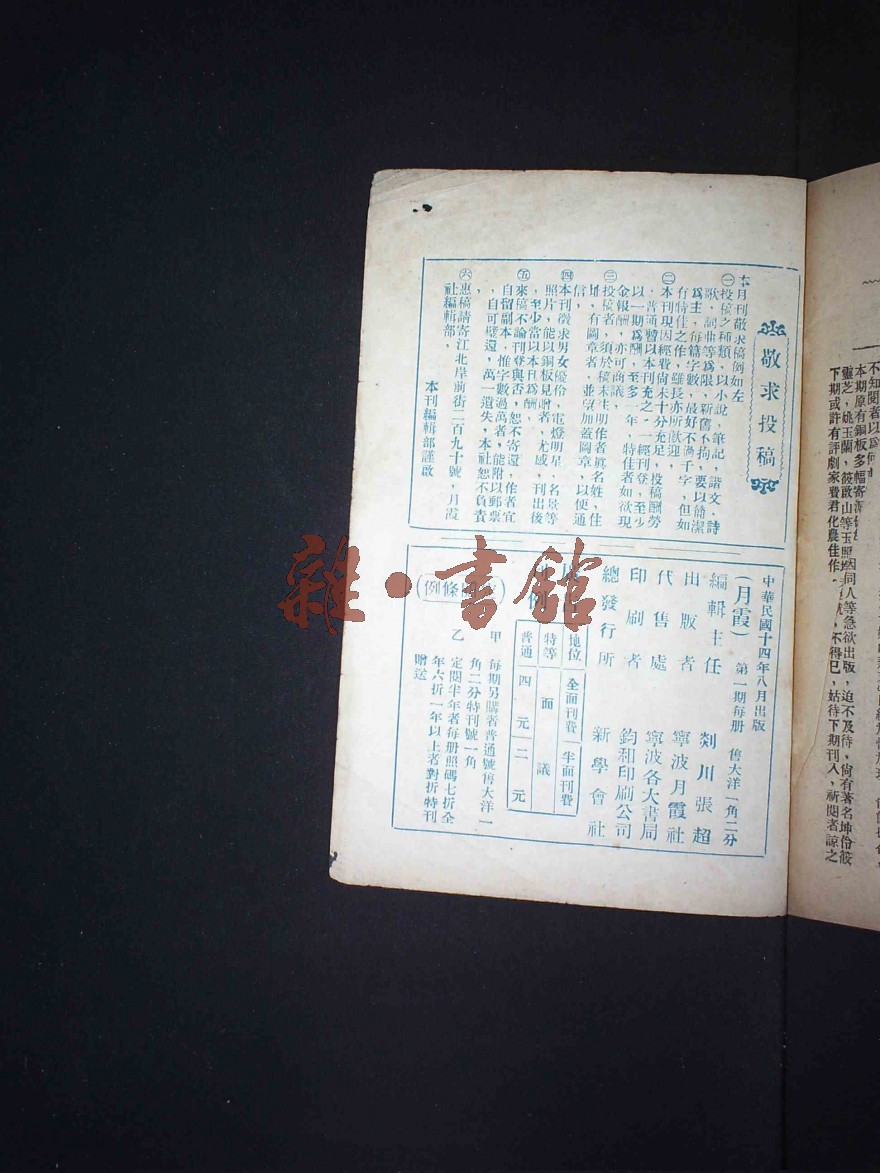 不知閱者以爲何
本期原有銅板多幅寄
靈芝，姚玉蘭，筱
因同人等急欲出版，迫不及待，尙有著名坤伶筱
下期或許有評劇家費君化農佳作
不得已，姑待下期刊入，祈閱者諒之
敬求投稿
本月刊敬求稿例如左
㊀投稿之種類，以小說，筆記，諧文，詩
歌，詞曲等爲限，新舊不拘，要以簡潔
爲主，每篇字數，最好不過千字，但如
有特佳之作，雖長亦所歡迎，
㊁本刊現因經費尙未十分充足，投稿酬勞
，普通暫以本刊充之，一經刊登，至少
以一期爲酬，至多一年，特佳者如欲現
金報酬，亦可商議，
㊂投稿者，須於稿末註明作者眞名姓，住
址，有圖章者，並望加蓋圖章，以便通
信，
㊃本刊徵求男女優伶，電燈明星，名景等
照片，能以銅板見贈者，尤感，刊出後
，至少當以本刊爲酬，
㊄來稿不論刊登與否，恕不寄還，作者宜
自留副本，惟字數過萬者，能附以郵票
，自可璧還，萬一遺失，本社恕不負責
，
㊅惠稿請寄江北岸前街二百九十號，月霞
社編輯部，
本刊編輯部謹啟
中華民國十四年八月出版
（月霞） 第一期每册 售大洋一角二分
編輯主任 剡川張超
出版者 寧波月霞社
代售處 寧波各大書局
印刷者 鈞和印刷公司
總發行所 新學會社
地位 全面刊費 半面刊費
特等 面議
普通 四元 二元
條例
甲 每期另購者普通號售大洋一
角二分特刊號一角
乙 定閱半年者每册照碼七折全
年六折一年以上者對折特刊
贈送
雜·書館